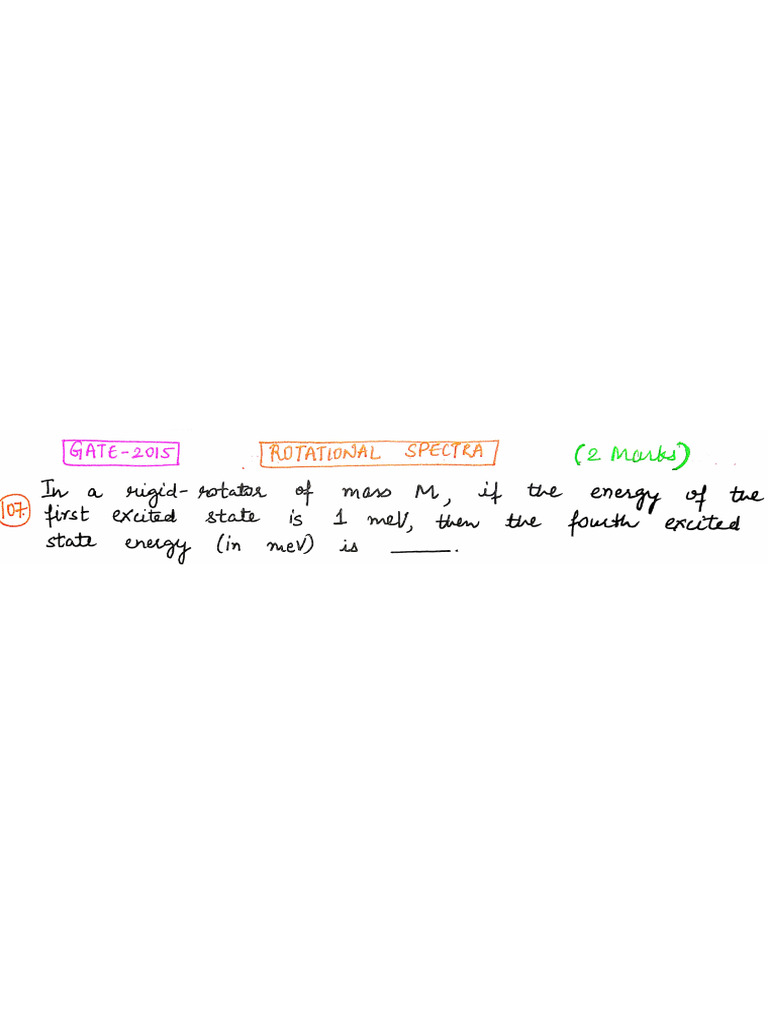 GATE-2015 ROTATIONAL SPECTRA (2 Marks)
107. In a rigid-rotator of mass M, if the energy of the
first excited state is 1 meV, then the fourth excited
state energy (in meV) is _____.